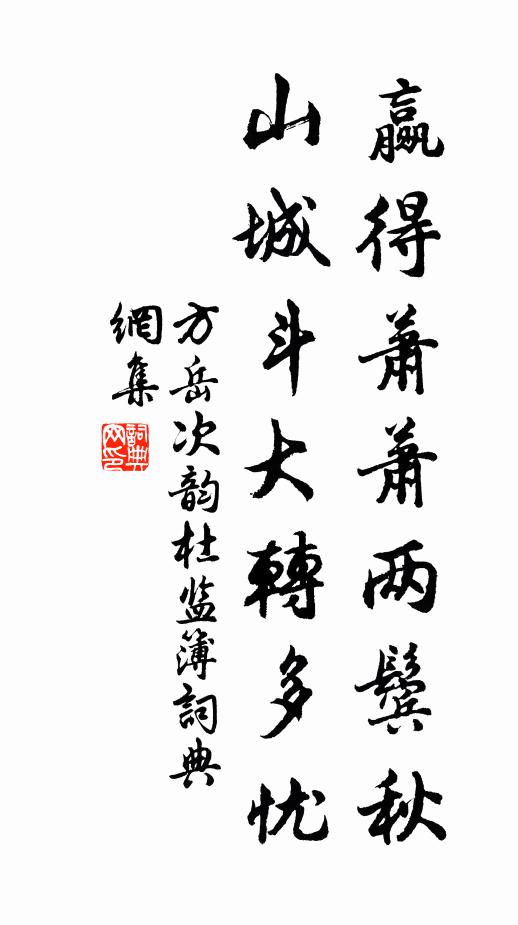 赢得萧萧两鬓秋
山城斗大轉多忧
方岳次韵杜监簿詞典
網集
詞典
网印